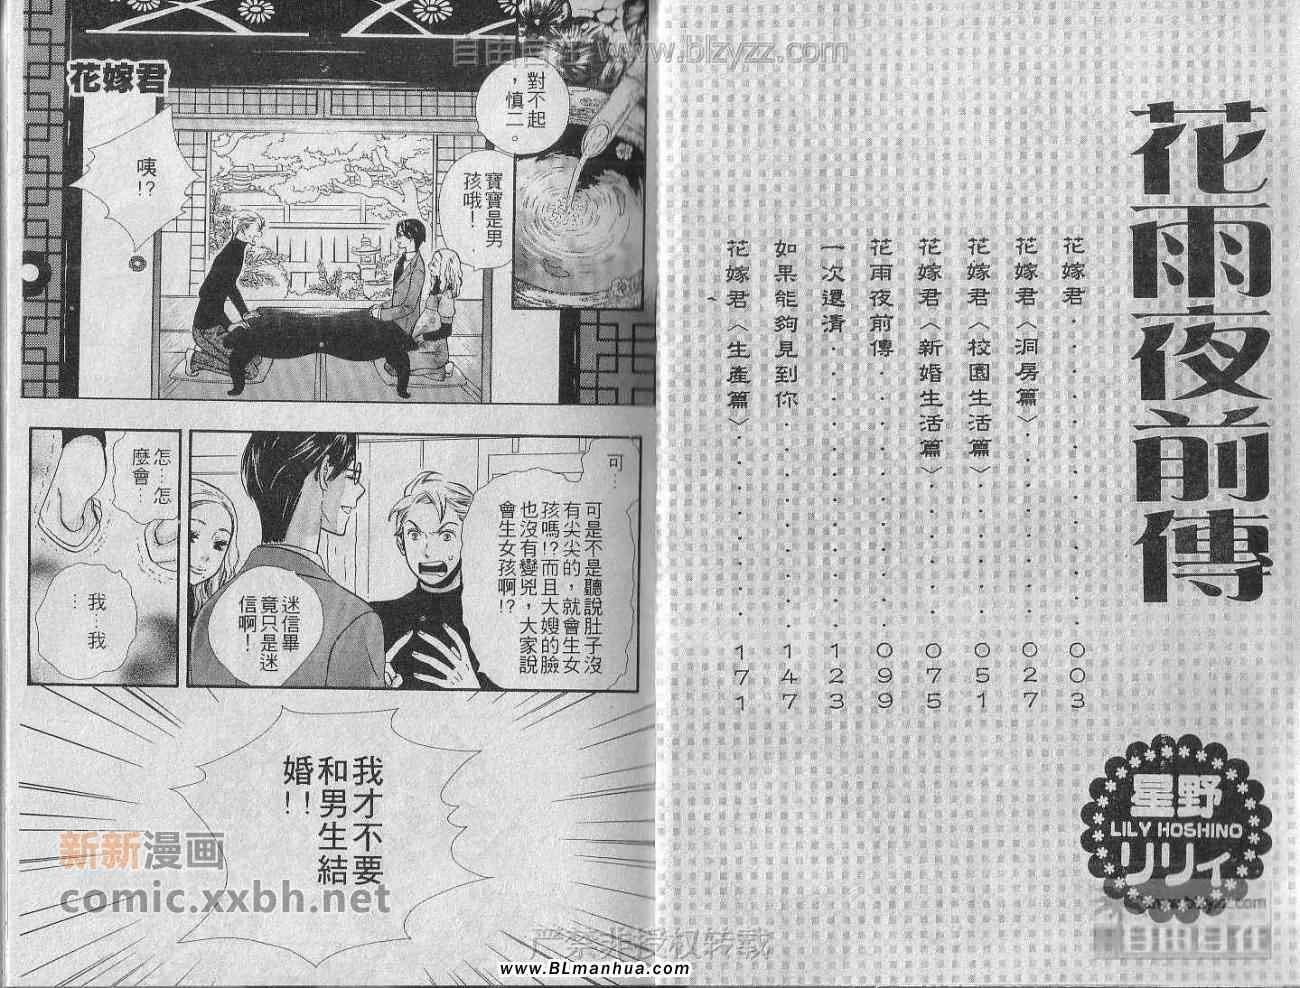 花雨夜前傳
花嫁君‧‧‧‧‧‧‧‧‧‧003
花嫁君〈洞房篇〉‧‧‧‧‧‧‧027
花嫁君〈校園生活篇〉‧‧‧‧‧051
花嫁君〈新婚生活篇〉‧‧‧‧‧075
花雨夜前傳‧‧‧‧‧‧‧‧099
一次還清‧‧‧‧‧‧‧‧‧123
如果能夠見到你‧‧‧‧‧‧‧147
花嫁君〈生產篇〉‧‧‧‧‧‧‧171
星野
LILY HOSHINO
リリィ
花嫁君
對不起
，慎二。
寶寶是男
孩哦！
咦
!?
可…
可是不是聽說肚子沒
有尖尖的，就會生女
孩嗎!?而且大嫂的臉
也沒有變兇，大家說
會生女孩啊!?
迷信畢
竟只是迷
信啊！
怎…怎
麼會…
我…我
…
我才不要
和男生結
婚!!
www.blzyzz.com
新新漫画
comic.xxbh.net
严禁非授权转载
www.BLmanhua.com